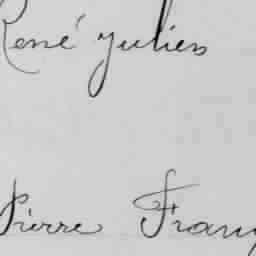 René Julien
Pierre Franç